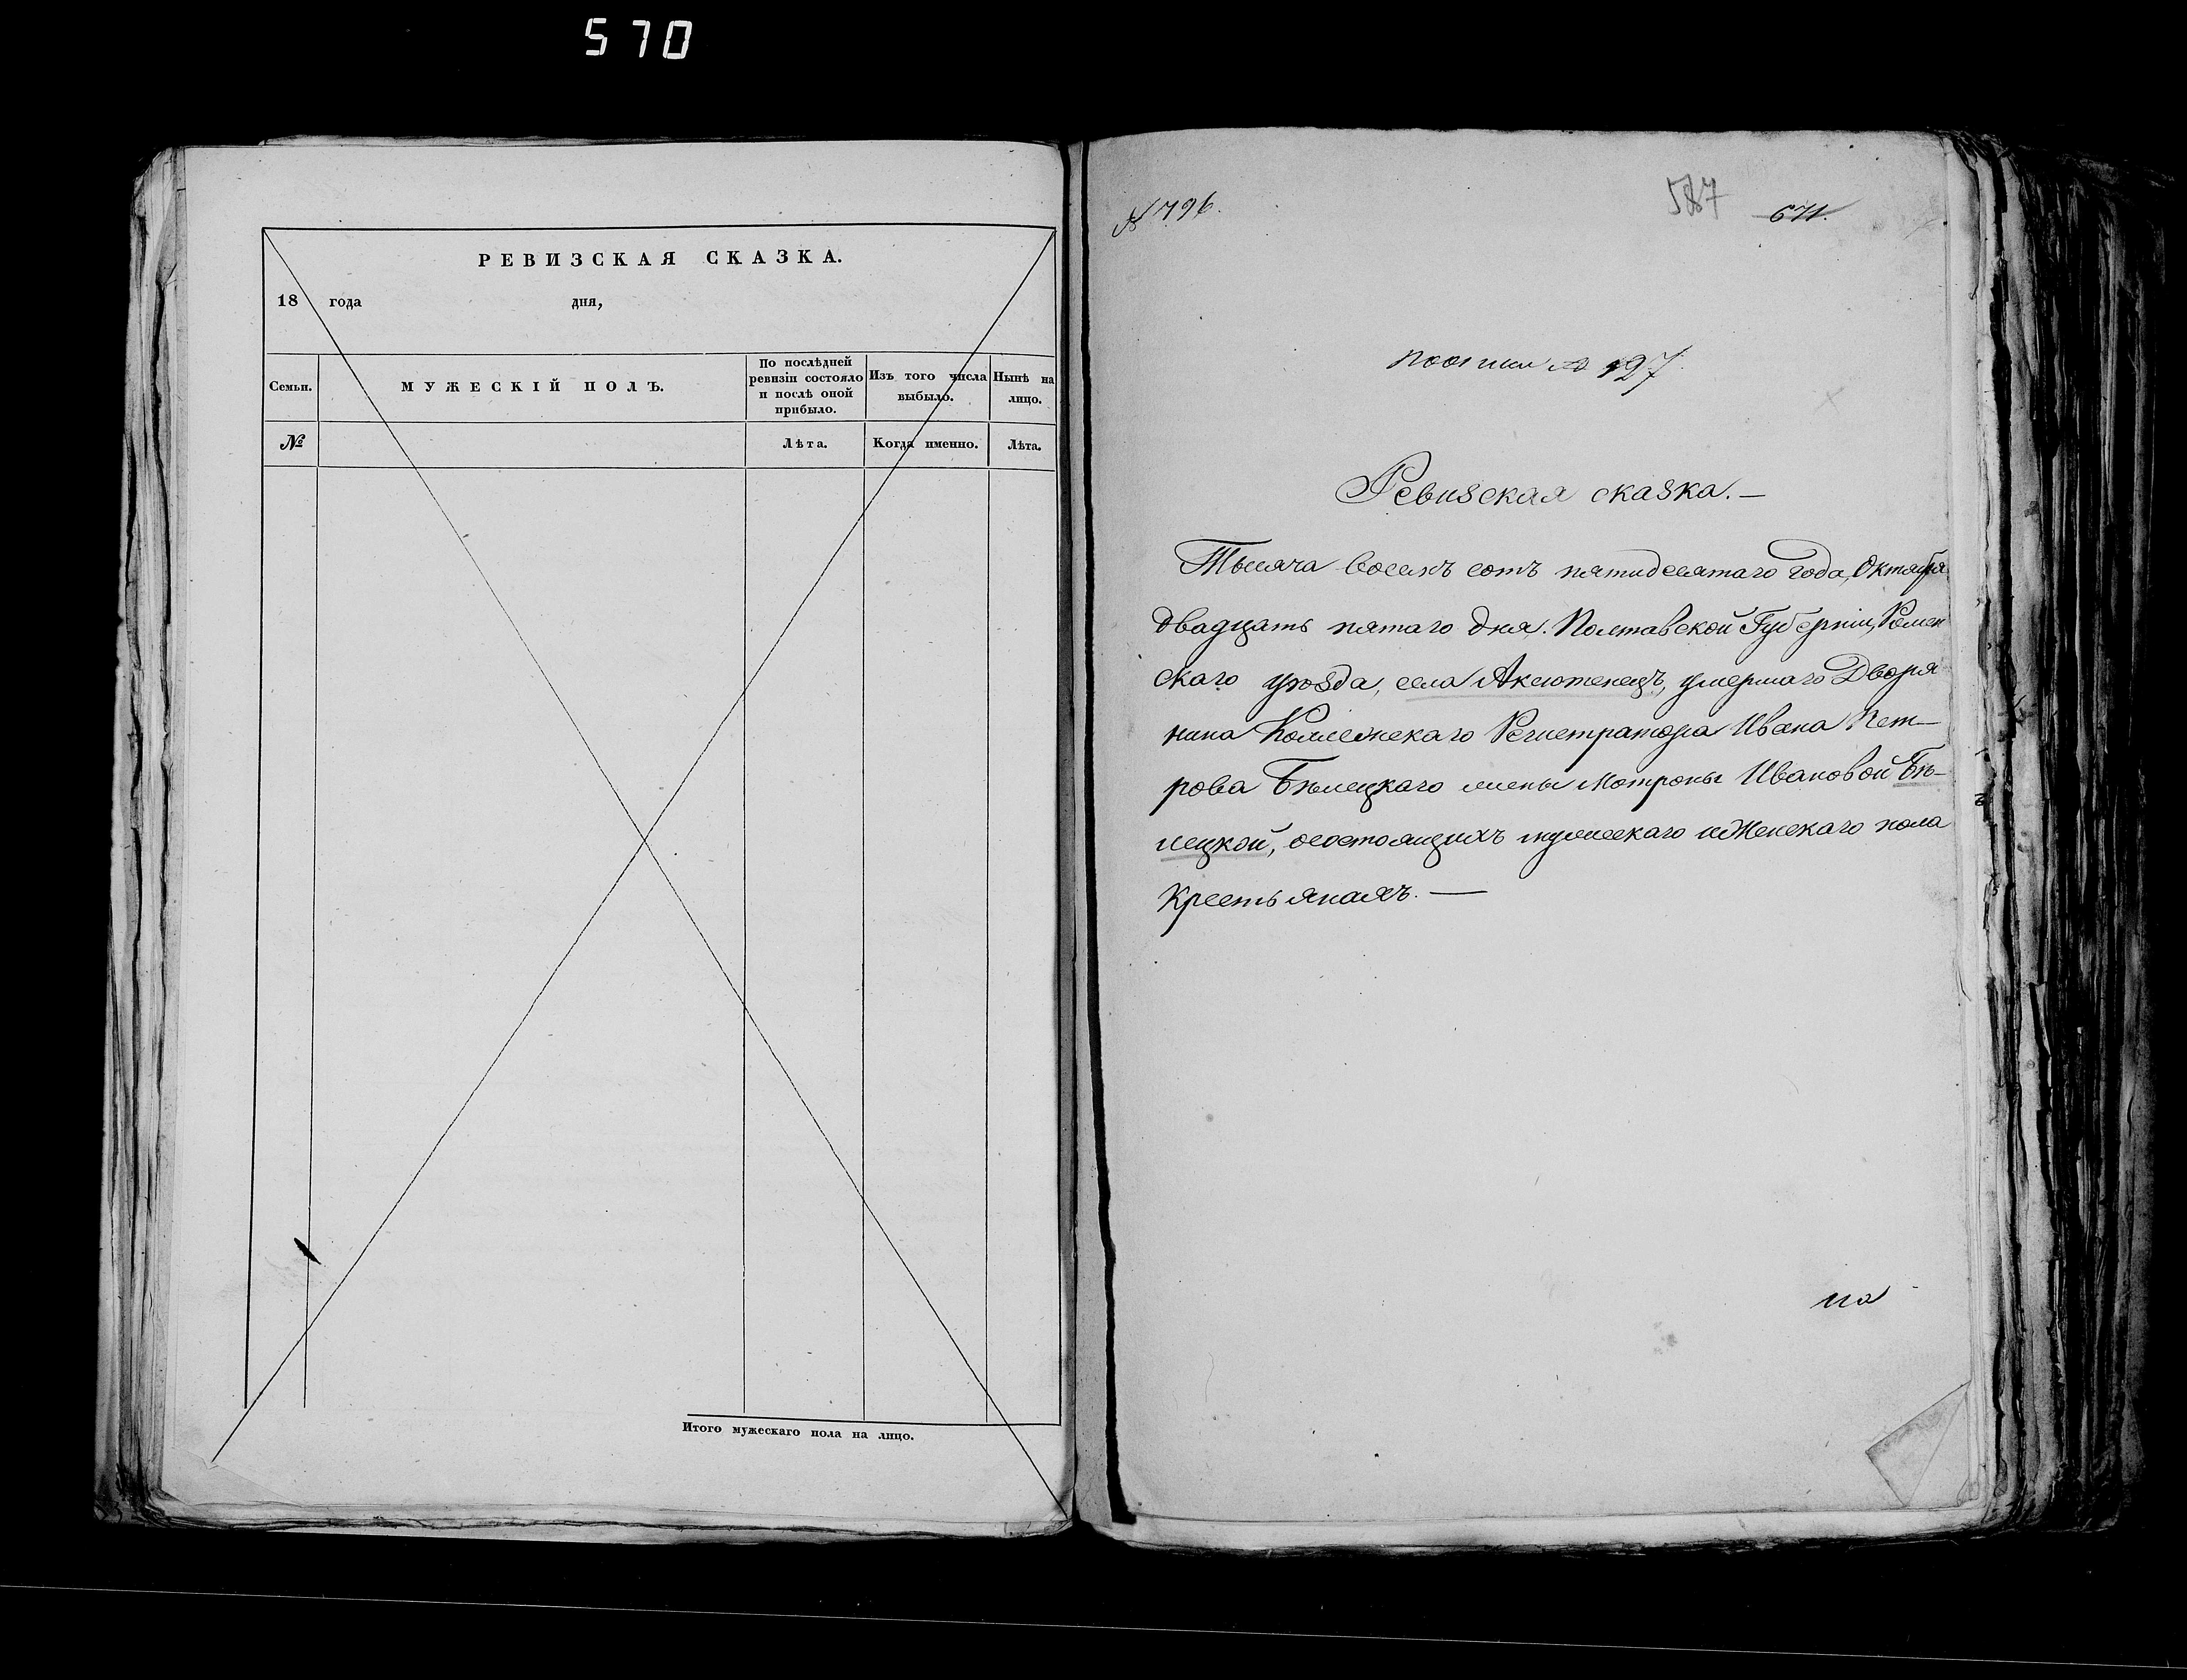 570
РЕВИЗСКАЯ СКАЗКА.
18 года дня,
Семьи.
МУЖЕСКІЙ ПОЛЪ.
По послѣдней
ревизіи состояло
и послѣ оной
прибыло.
Изъ того числа
выбыло.
Нынѣ на
лицо.
№
Лѣта.
Когда именно.
Лѣта.
Итого мужескаго пола на лицо.
№ 796.
587 671.
127
Ревизская сказка.—
Тысяча восемь сотъ пятидесятаго года, Октября
двадцать пятаго дня. Полтавской Губерніи, Ромен
скаго уѣзда, села Аксютенецъ, умершаго Дворя
нина Коллежскаго Регистратора Ивана Пет—
рова Бѣлецкаго жены Мотроны Ивановой Бѣ—
лецкой, состоящихъ мужескаго и женскаго пола
крестьянахъ.—
на